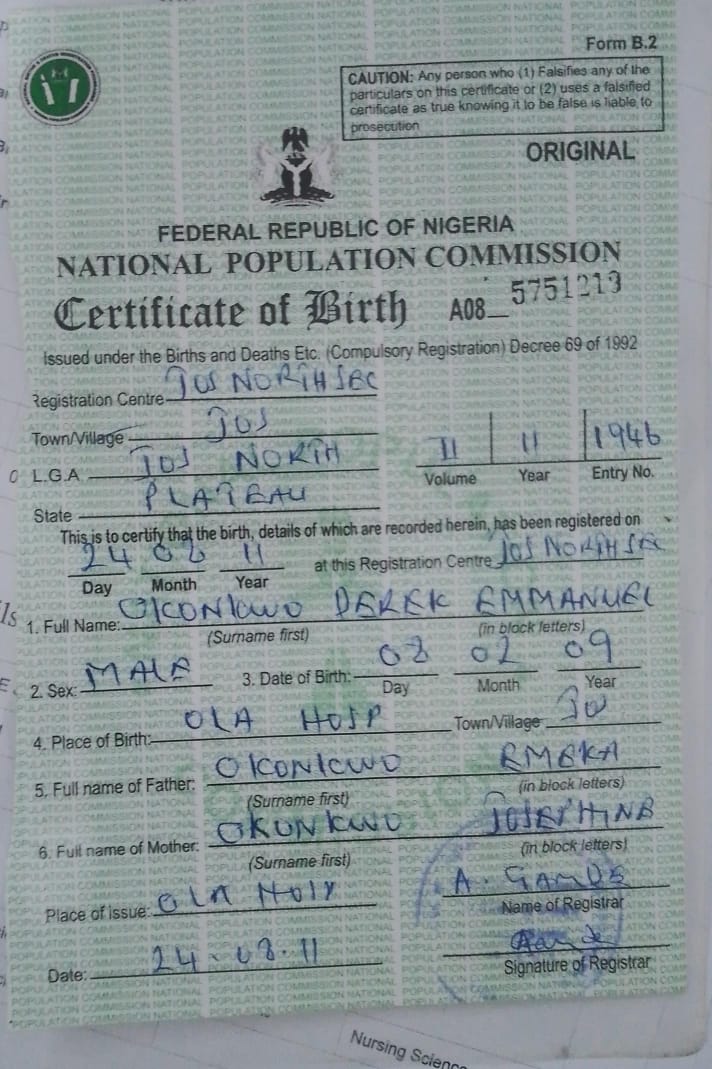 Form B.2
CAUTION: Any person who (1) Falsifies any of the
particulars on this certificate or (2) uses a falsified
certificate as true knowing it to be false is liable to
prosecution
ORIGINAL
FEDERAL REPUBLIC OF NIGERIA
NATIONAL POPULATION COMMISSION
Certificate of Birth A08 5751213
Issued under the Births and Deaths Etc. (Compulsory Registration) Decree 69 of 1992
Registration Centre JOS NORTH SEC
Town/Village JOS
L.G.A JOS NORTH
II 11 1946
Volume Year Entry No.
State PLATEAU
This is to certify that the birth, details of which are recorded herein, has been registered on
24 08 11 at this Registration Centre JOS NORTH SEC
Day Month Year
1. Full Name: OKONKWO DEREK EMMANUEL
(Surname first) (in block letters)
2. Sex: MALE 3. Date of Birth: 08 02 09
Day Month Year
4. Place of Birth: OLA HOSP Town/Village JOS
5. Full name of Father: OKONKWO EMEKA
(Surname first) (in block letters)
6. Full name of Mother: OKONKWO JOSEPHINE
(Surname first) (in block letters)
Place of Issue: OLA A.
Name of Registrar
Date: 24.08.11
Signature of Registrar
Nursing Science